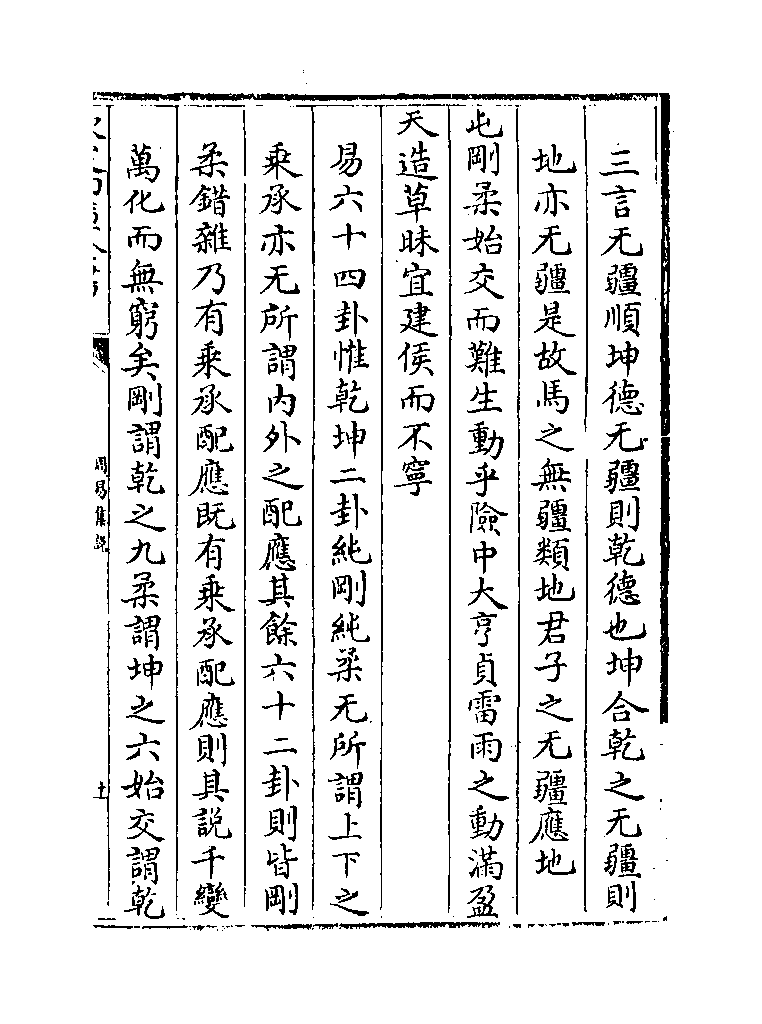 三言无疆順坤德无疆則乾德也坤合乾之无疆則
地亦无疆是故馬之無疆類地君子之无疆應地
屯剛柔始交而難生動乎險中大亨貞雷雨之動滿盈
天造草昧宜建侯而不寧
易六十四卦惟乾坤二卦純剛純柔无所謂上下之
乘承亦无所謂内外之配應其餘六十二卦則皆剛
柔錯雜乃有乘承配應既有乘承配應則其説千變
萬化而無窮矣剛謂乾之九柔謂坤之六始交謂乾
周易集説